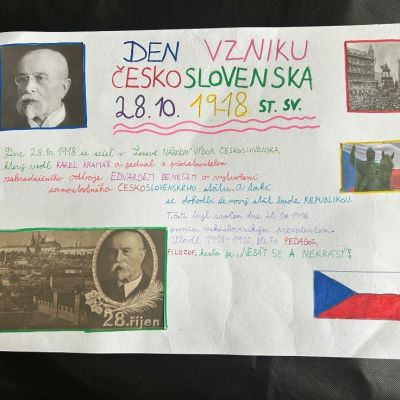 DEN VZNIKU
ČESKOSLOVENSKA
28.10. 1918 ST. SV.
Dne 28.10. 1918 se sešel v Ženevě NÁRODNÍ VÝBOR ČESKOSLOVENSKÁ,
který vedl KAREL KRAMÁŘ a jednal s představitelem
zahraničního odboje EDVARDEM BENEŠEM o vytvoření
samostatného ČESKOSLOVENSKÉHO státu, a také
se dohodli že nový stát bude REPUBLIKOU.
T.G.M. byl zvolen dne
prvním československým prezidentem.
1918-1935, BYL TO PEDAGOG,
FILOZOF, heslo je: „NEBÁT SE A NEKRÁST"!
28. říjen